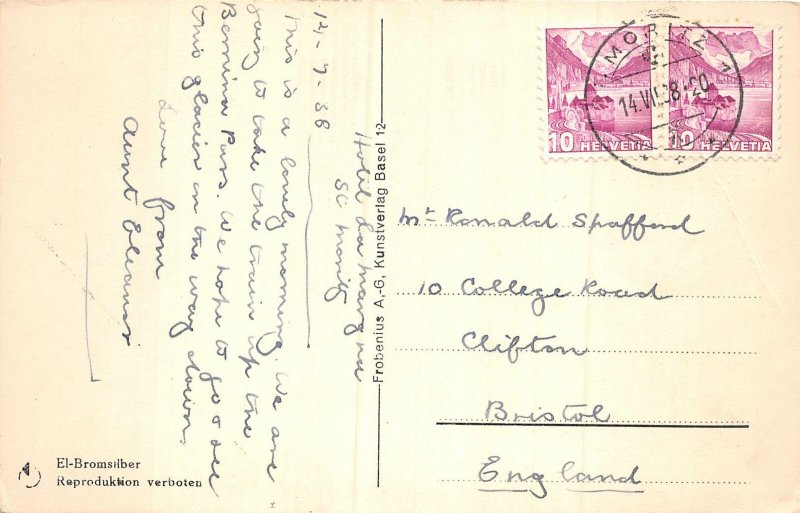 Hotel La Margna
St Moritz
14-7-38
This is a lovely morning. We are
going to take the train up the
Bernina Pass. We hope to go & see
this glacier on the way down.
Love from
Aunt Eleanor
Frobenius A,-G, Kunstverlag Basel 12
MORITZ 1
14.VII.38.20
10 HELVETIA
10 HELVETIA
Mr Ronald Spafford
10 College Road
Clifton
Bristol
England
El-Bromsilber
Reproduktion verboten